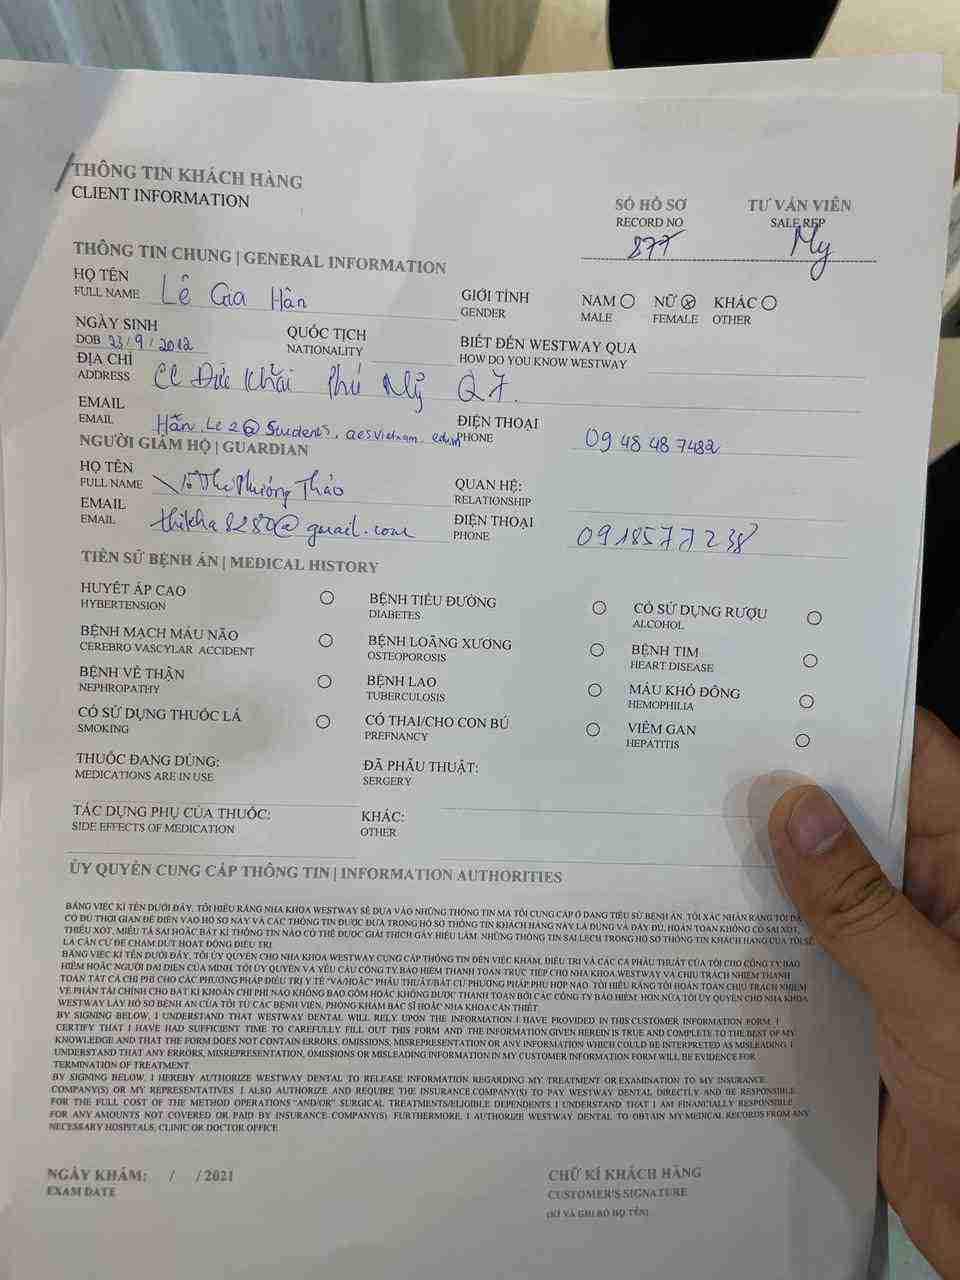 THÔNG TIN KHÁCH HÀNG
CLIENT INFORMATION
SỐ HỒ SƠ TƯ VẤN VIÊN
RECORD NO SALE REP
877 My
THÔNG TIN CHUNG | GENERAL INFORMATION
HỌ TÊN
FULL NAME Lê Gia Hân
GIỚI TÍNH NAM NỮ KHÁC
GENDER MALE FEMALE OTHER
NGÀY SINH QUỐC TỊCH BIẾT ĐẾN WESTWAY QUA
DOB 23/9/2012 NATIONALITY HOW DO YOU KNOW WESTWAY
ĐỊA CHỈ
ADDRESS CC Đức Khải Phú Mỹ Q7.
EMAIL ĐIỆN THOẠI
EMAIL Hân.Le2@students.aesvietnam.edu.vn PHONE 0948487482
NGƯỜI GIÁM HỘ | GUARDIAN
HỌ TÊN QUAN HỆ:
FULL NAME Võ Thị Phương Thảo RELATIONSHIP
EMAIL ĐIỆN THOẠI
EMAIL @gmail.com PHONE 0918577238
TIỀN SỬ BỆNH ÁN | MEDICAL HISTORY
HUYẾT ÁP CAO BỆNH TIỂU ĐƯỜNG CÓ SỬ DỤNG RƯỢU
HYBERTENSION DIABETES ALCOHOL
BỆNH MẠCH MÁU NÃO BỆNH LOÃNG XƯƠNG BỆNH TIM
CEREBRO VASCYLAR ACCIDENT OSTEOPOROSIS HEART DISEASE
BỆNH VỀ THẬN BỆNH LAO MÁU KHÓ ĐÔNG
NEPHROPATHY TUBERCULOSIS HEMOPHILIA
CÓ SỬ DỤNG THUỐC LÁ CÓ THAI/CHO CON BÚ VIÊM GAN
SMOKING PREFNANCY HEPATITIS
THUỐC ĐANG DÙNG: ĐÃ PHẪU THUẬT:
MEDICATIONS ARE IN USE SERGERY
TÁC DỤNG PHỤ CỦA THUỐC: KHÁC:
SIDE EFFECTS OF MEDICATION OTHER
ỦY QUYỀN CUNG CẤP THÔNG TIN | INFORMATION AUTHORITIES
BẰNG VIỆC KÍ TÊN DƯỚI ĐÂY, TÔI HIỂU RẰNG NHA KHOA WESTWAY SẼ DỰA VÀO NHỮNG THÔNG TIN MÀ TÔI CUNG CẤP Ở DẠNG TIỂU SỬ BỆNH ÁN. TÔI XÁC NHẬN RẰNG TÔI ĐÃ
CÓ ĐỦ THỜI GIAN ĐỂ ĐIỀN VÀO HỒ SƠ NÀY VÀ CÁC THÔNG TIN ĐƯỢC ĐƯA TRONG HỒ SƠ THÔNG TIN KHÁCH HÀNG NÀY LÀ ĐÚNG VÀ ĐẦY ĐỦ, HOÀN TOÀN KHÔNG CÓ SAI XÓT,
THIẾU XÓT, MIÊU TẢ SAI HOẶC BẤT KÌ THÔNG TIN NÀO CÓ THỂ ĐƯỢC GIẢI THÍCH GÂY HIỂU LẦM. NHỮNG THÔNG TIN SAI LỆCH TRONG HỒ SƠ THÔNG TIN KHÁCH HÀNG CỦA TÔI SẼ
LÀ CĂN CỨ ĐỂ CHẤM DỨT HOẠT ĐỘNG ĐIỀU TRỊ.
BẰNG VIỆC KÍ TÊN DƯỚI ĐÂY, TÔI ỦY QUYỀN CHO NHA KHOA WESTWAY CUNG CẤP THÔNG TIN ĐẾN VIỆC KHÁM, ĐIỀU TRỊ VÀ CÁC CA PHẪU THUẬT CỦA TÔI CHO CÔNG TY BẢO
HIỂM HOẶC NGƯỜI ĐẠI DIỆN CỦA MÌNH. TÔI ỦY QUYỀN VÀ YÊU CẦU CÔNG TY BẢO HIỂM THANH TOÁN TRỰC TIẾP CHO NHA KHOA WESTWAY VÀ CHỊU TRÁCH NHIỆM THANH
TOÁN TẤT CẢ CHI PHÍ CHO CÁC PHƯƠNG PHÁP ĐIỀU TRỊ Y TẾ "VÀ/HOẶC" PHẪU THUẬT/BẤT CỨ PHƯƠNG PHÁP PHÙ HỢP NÀO. TÔI HIỂU RẰNG TÔI HOÀN TOÀN CHỊU TRÁCH NHIỆM
VỀ PHẦN TÀI CHÍNH CHO BẤT KÌ KHOẢN CHI PHÍ NÀO KHÔNG BAO GỒM HOẶC KHÔNG ĐƯỢC THANH TOÁN BỞI CÁC CÔNG TY BẢO HIỂM. HƠN NỮA TÔI ỦY QUYỀN CHO NHA KHOA
WESTWAY LẤY HỒ SƠ BỆNH ÁN CỦA TÔI TỪ CÁC BỆNH VIỆN, PHÒNG KHÁM BÁC SĨ HOẶC NHA KHOA CẦN THIẾT.
BY SIGNING BELOW, I UNDERSTAND THAT WESTWAY DENTAL WILL RELY UPON THE INFORMATION I HAVE PROVIDED IN THIS CUSTOMER INFORMATION FORM. I
CERTIFY THAT I HAVE HAD SUFFICIENT TIME TO CAREFULLY FILL OUT THIS FORM AND THE INFORMATION GIVEN HEREIN IS TRUE AND COMPLETE TO THE BEST OF MY
KNOWLEDGE AND THAT THE FORM DOES NOT CONTAIN ERRORS, OMISSIONS, MISREPRESENTATION OR ANY INFORMATION WHICH COULD BE INTERPRETED AS MISLEADING. I
UNDERSTAND THAT ANY ERRORS, MISREPRESENTATION, OMISSIONS OR MISLEADING INFORMATION IN MY CUSTOMER INFORMATION FORM WILL BE EVIDENCE FOR
TERMINATION OF TREATMENT.
BY SIGNING BELOW, I HEREBY AUTHORIZE WESTWAY DENTAL TO RELEASE INFORMATION REGARDING MY TREATMENT OR EXAMINATION TO MY INSURANCE
COMPANY(S) OR MY REPRESENTATIVES. I ALSO AUTHORIZE AND REQUIRE THE INSURANCE COMPANY(S) TO PAY WESTWAY DENTAL DIRECTLY AND BE RESPONSIBLE
FOR THE FULL COST OF THE METHOD OPERATIONS "AND/OR" SURGICAL TREATMENTS/ELIGIBLE DEPENDENTS. I UNDERSTAND THAT I AM FINANCIALLY RESPONSIBLE
FOR ANY AMOUNTS NOT COVERED OR PAID BY INSURANCE COMPANY(S). FURTHERMORE, I AUTHORIZE WESTWAY DENTAL TO OBTAIN MY MEDICAL RECORDS FROM ANY
NECESSARY HOSPITALS, CLINIC OR DOCTOR OFFICE.
NGÀY KHÁM: / / 2021 CHỮ KÍ KHÁCH HÀNG
EXAM DATE CUSTOMER'S SIGNATURE
(KÍ VÀ GHI RÕ HỌ TÊN)